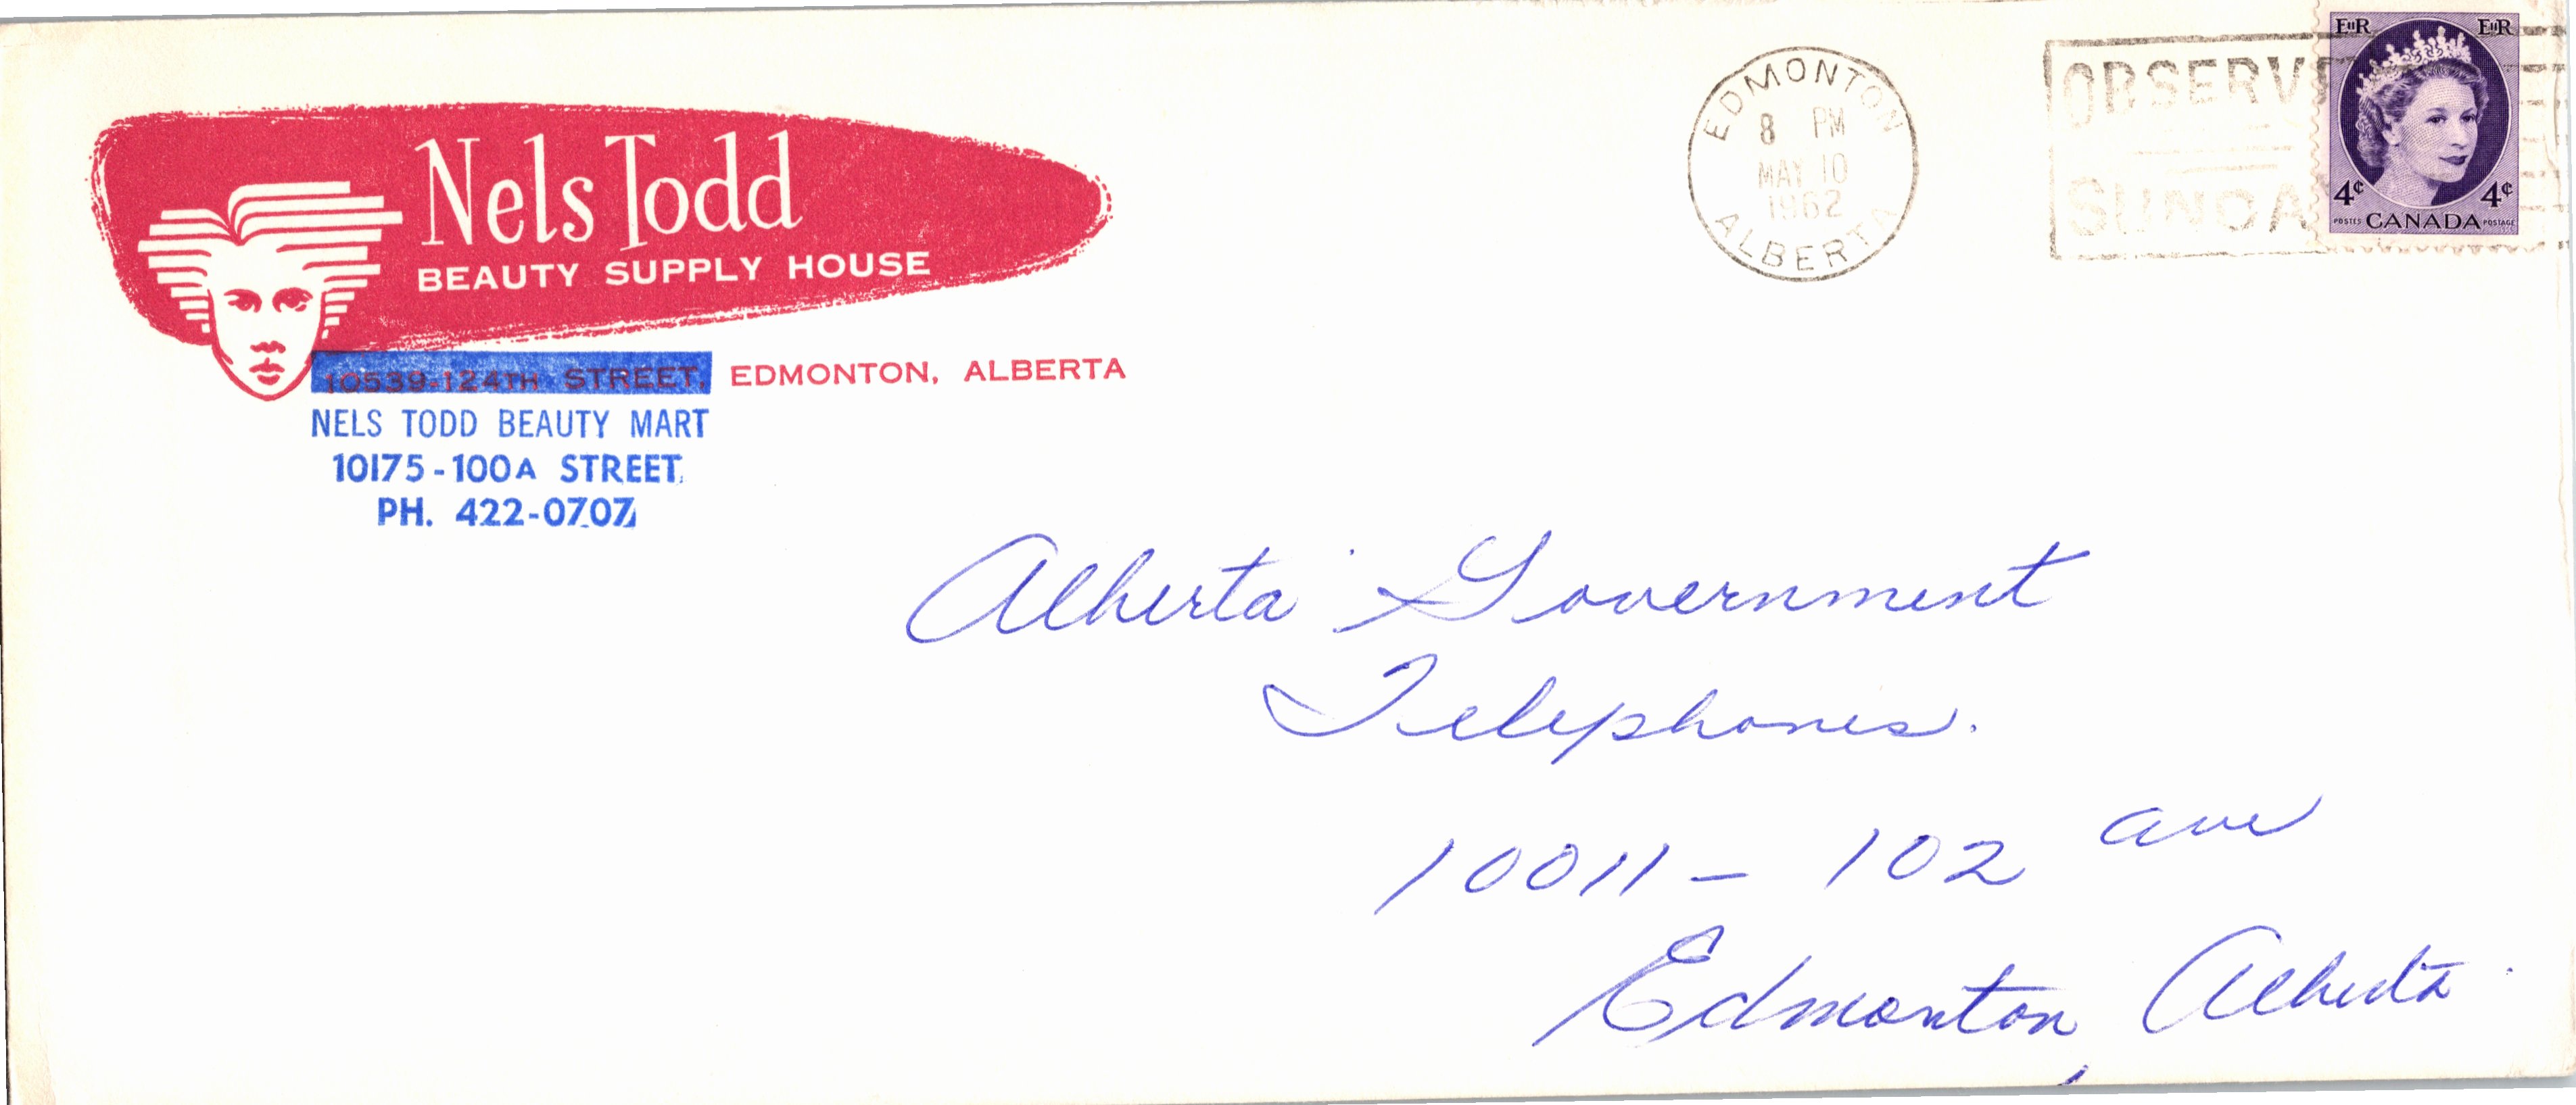 Nels Todd
BEAUTY SUPPLY HOUSE
10539-124TH STREET, EDMONTON, ALBERTA
NELS TODD BEAUTY MART
10175-100A STREET
PH. 422-0707
EDMONTON
8 PM
MAY 10
1962
ALBERTA
OBSERV
SUNDA
EIIR EIIR
4¢ 4¢
POSTES CANADA POSTAGE
Alberta Government
Telephones.
10011 - 102 ave
Edmonton, Alberta